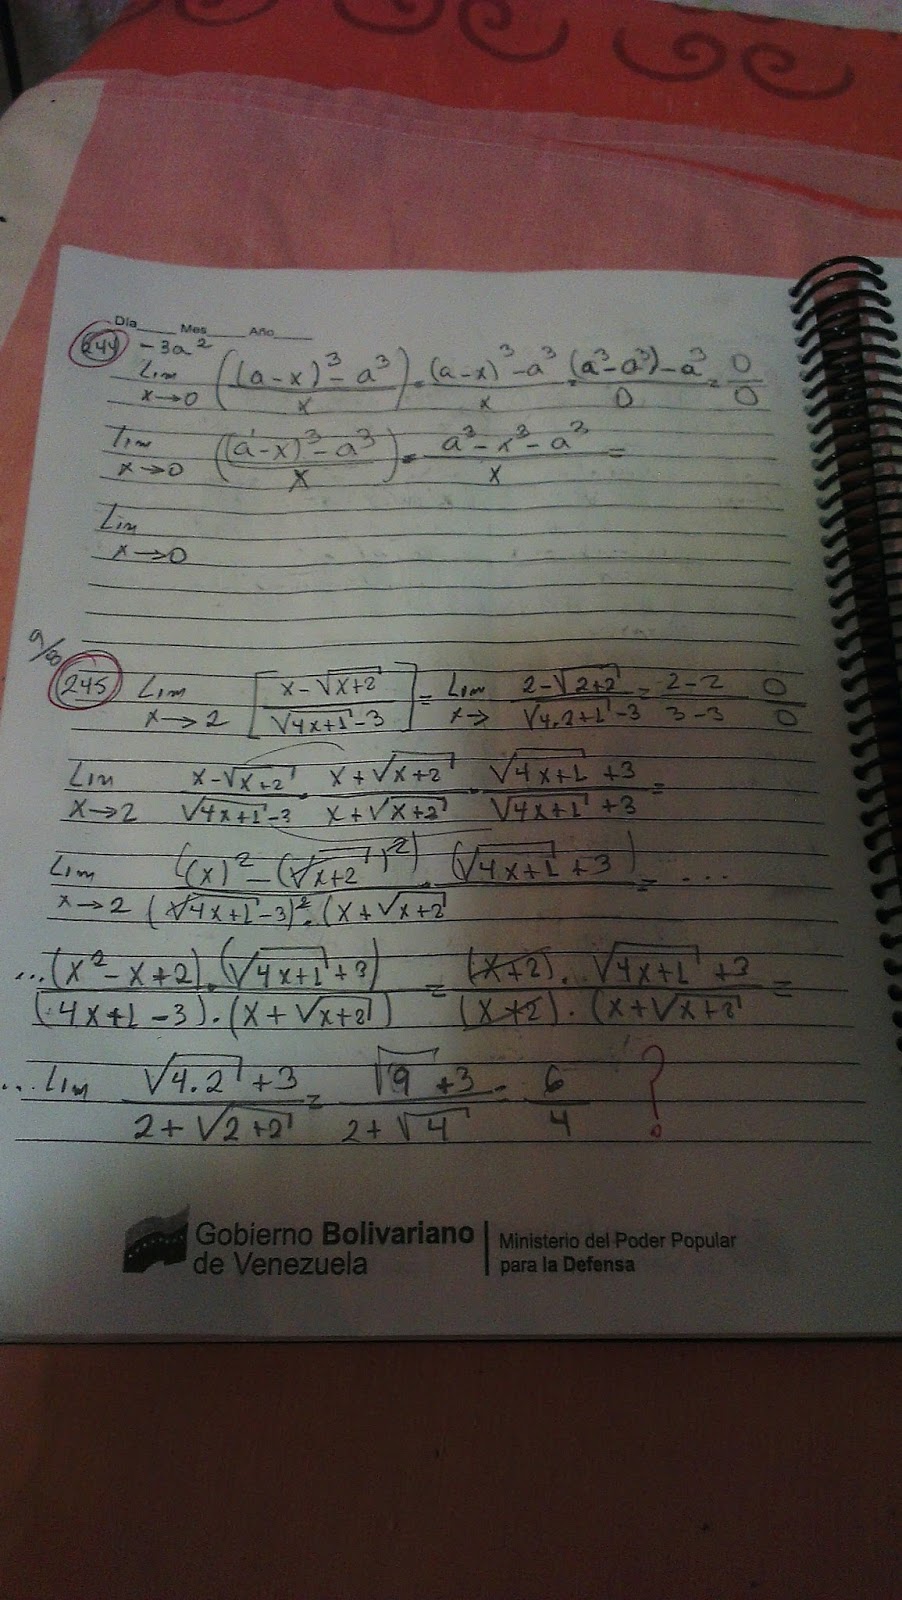 Día____ Mes____ Año____
244 -3a²
Lim x→0 ((a-x)³-a³)/x = (a-x)³-a³/x = (a³-a³)-a³/0 = 0/0
Lim x→0 ((a-x)³-a³)/x = a³-x³-a³/x =
Lim
x→0
9/8
245 Lim x→2 [x-√x+2/√4x+1-3] = Lim x→ 2-√2+2/√4.2+1-3 = 2-2/3-3 0/0
Lim x→2 x-√x+2/√4x+1-3 . x+√x+2/x+√x+2 . √4x+1+3/√4x+1+3 =
Lim x→2 ((x)²-(√x+2)²).(√4x+1+3)/(√4x+1-3)².(x+√x+2 = ...
...(x²-x+2).(√4x+1+3)/(4x+1-3).(x+√x+2) = (x+2).√4x+1+3/(x+2).(x+√x+2 =
...Lim √4.2+3/2+√2+2 = √9+3/2+√4 = 6/4 ?
Gobierno Bolivariano de Venezuela
Ministerio del Poder Popular para la Defensa